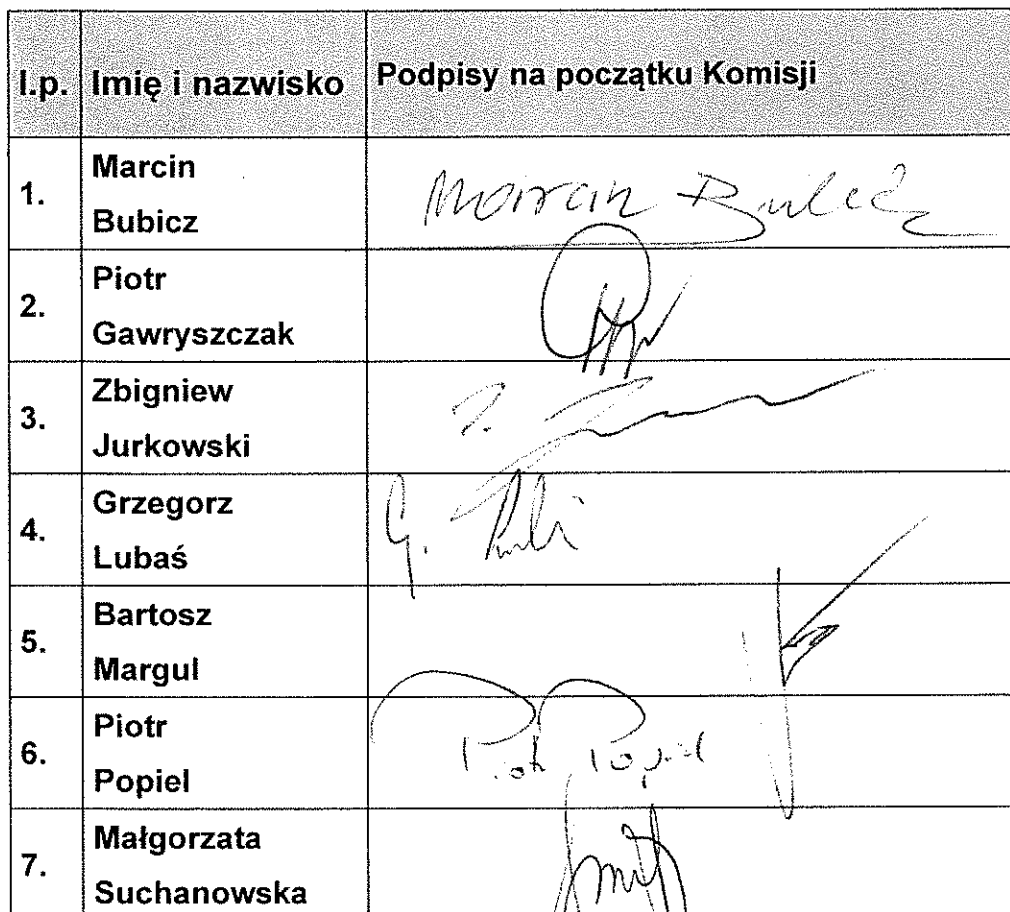 l.p. Imię i nazwisko Podpisy na początku Komisji
1. Marcin Bubicz Marcin Bubicz
2. Piotr Gawryszczak
3. Zbigniew Jurkowski
4. Grzegorz Lubaś G.
5. Bartosz Margul
6. Piotr Popiel Piotr Popiel
7. Małgorzata Suchanowska